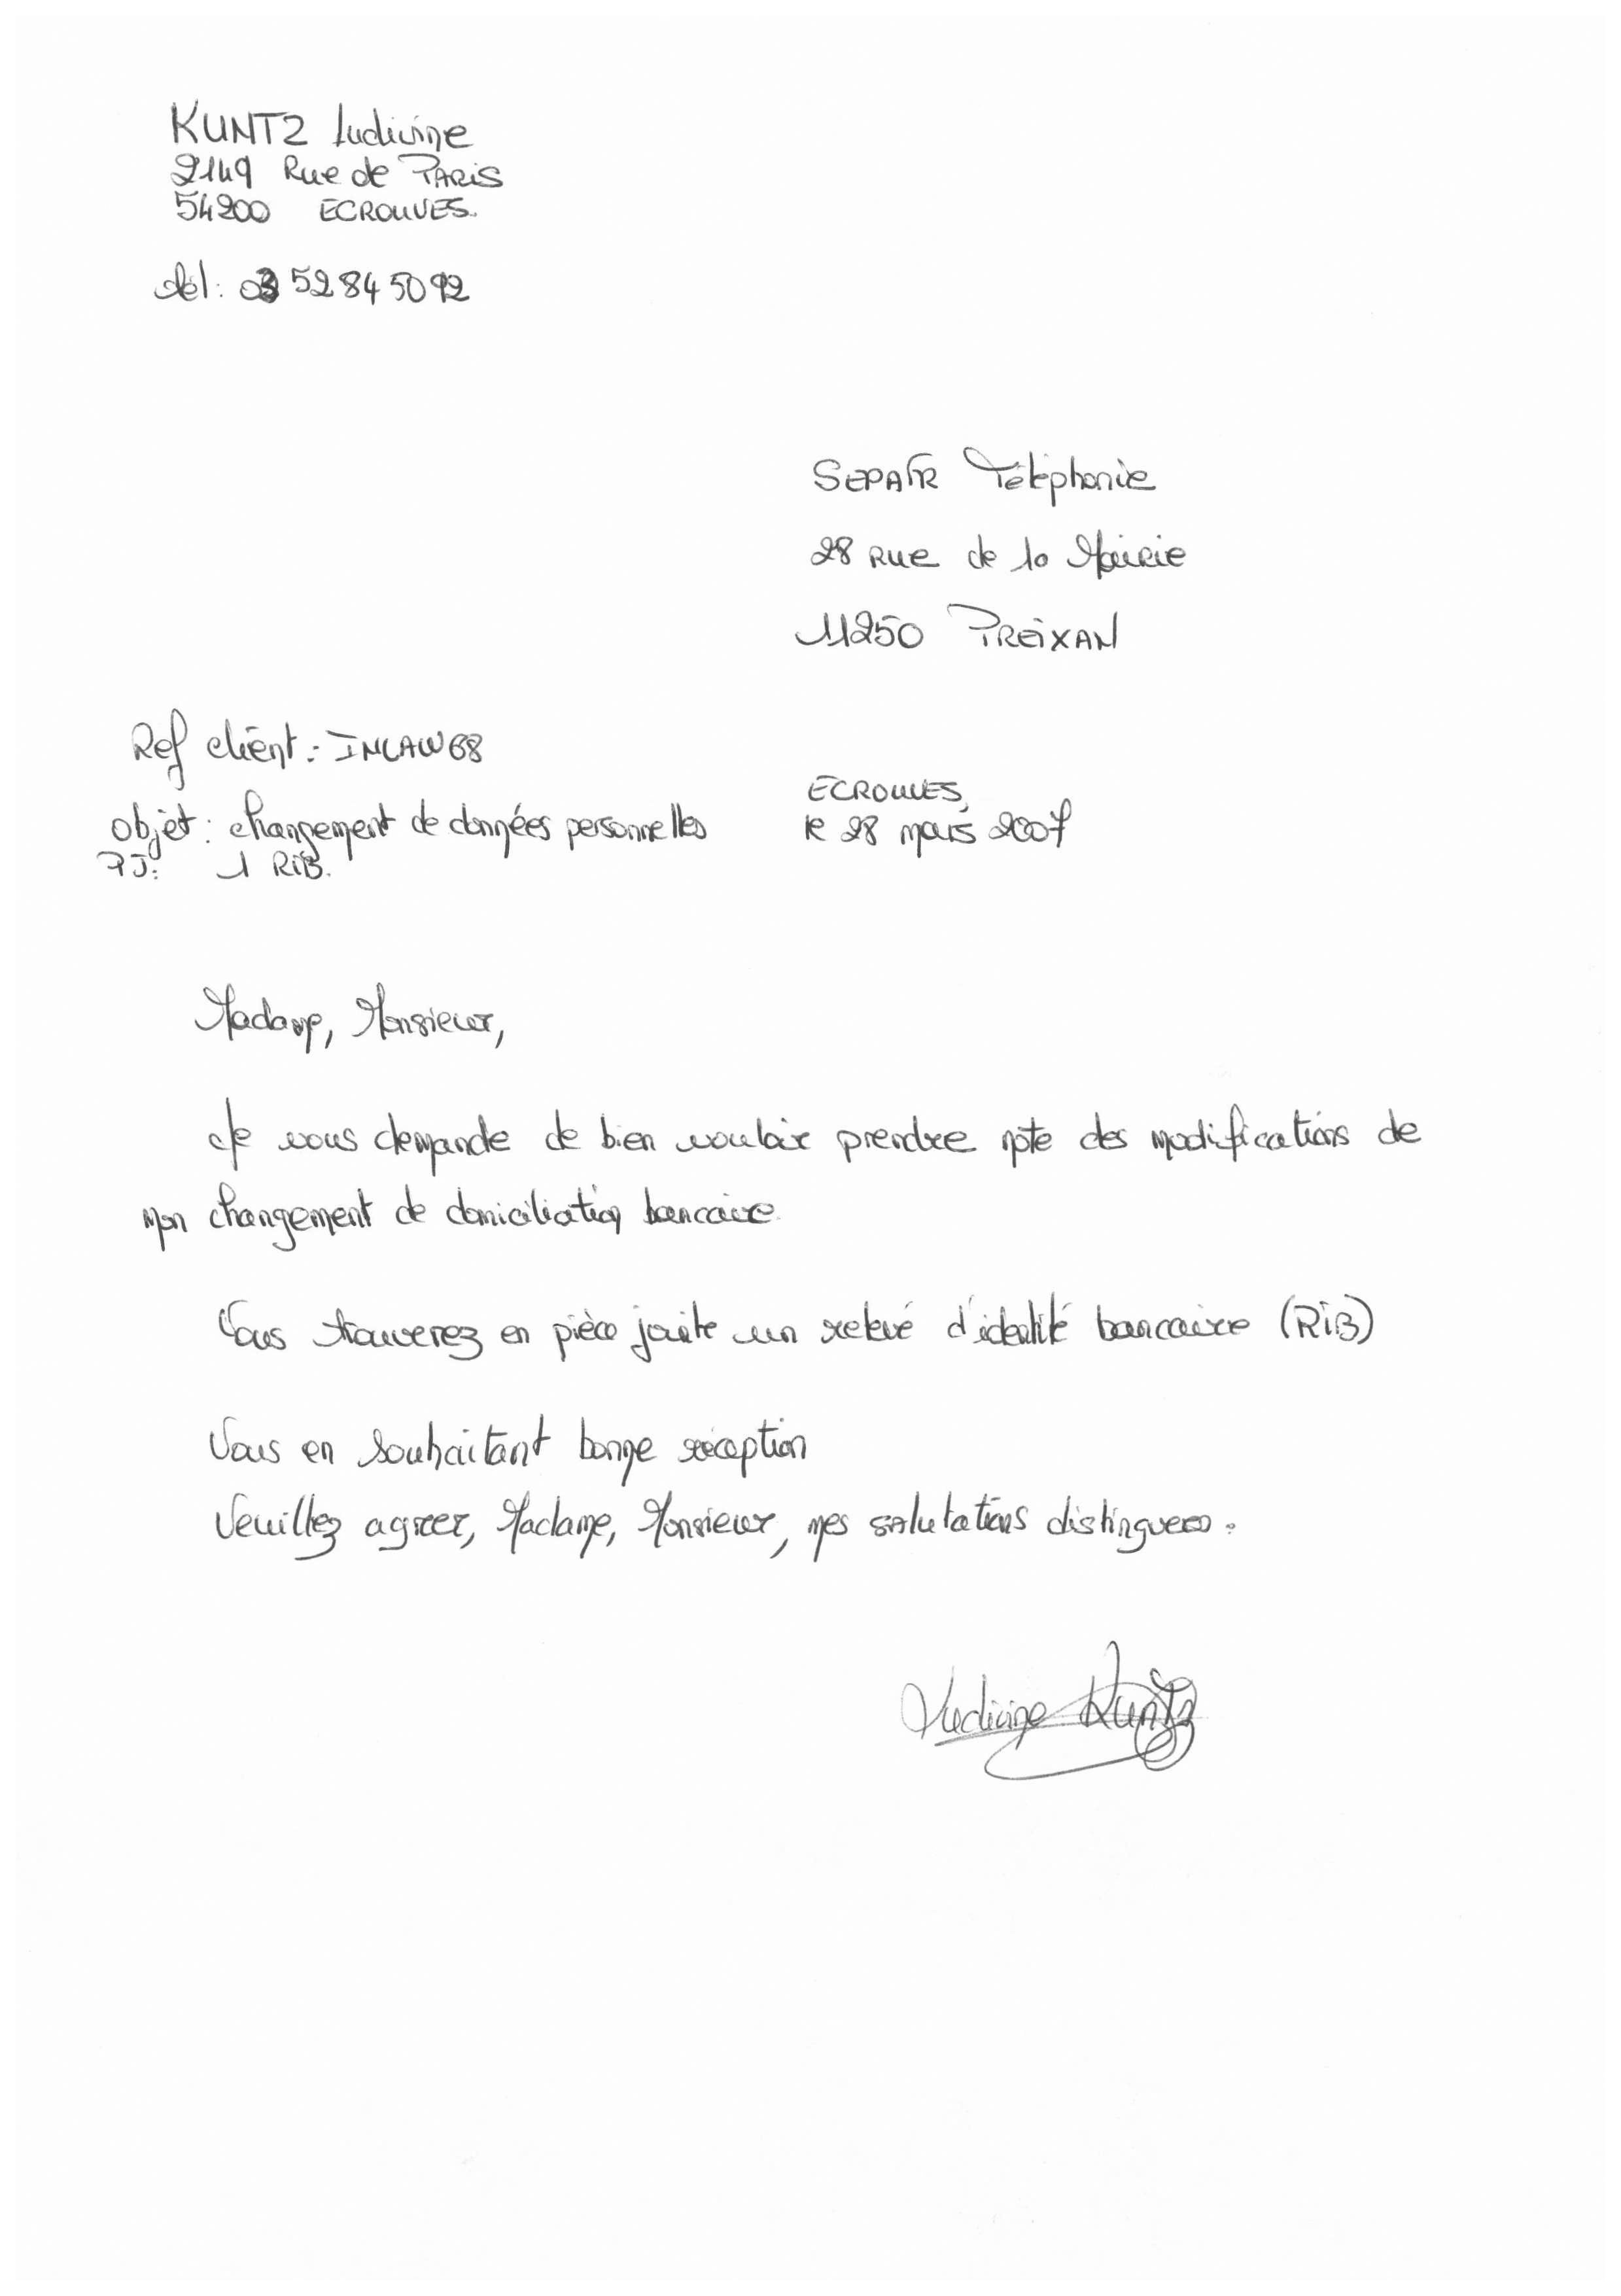 KUNTZ Ludivine
2149 Rue de PARIS
54200 ECROUVES.
tél: 03 52 84 50 92
SEPAFR Téléphonie
28 RUE de la Mairie
11250 PREIXAN
Ref client: INLAW68
ECROUVES,
objet: changement de données personnelles le 28 mars 2007
PJ: 1 RIB.
Madame, Monsieur,
Je vous demande de bien vouloir prendre note des modifications de
mon changement de domiciliation bancaire.
Vous trouverez en pièce jointe un relevé d'identité bancaire (RIB)
Vous en souhaitant bonne réception
Veuillez agréer, Madame, Monsieur, mes salutations distinguées.
Ludivine Kuntz